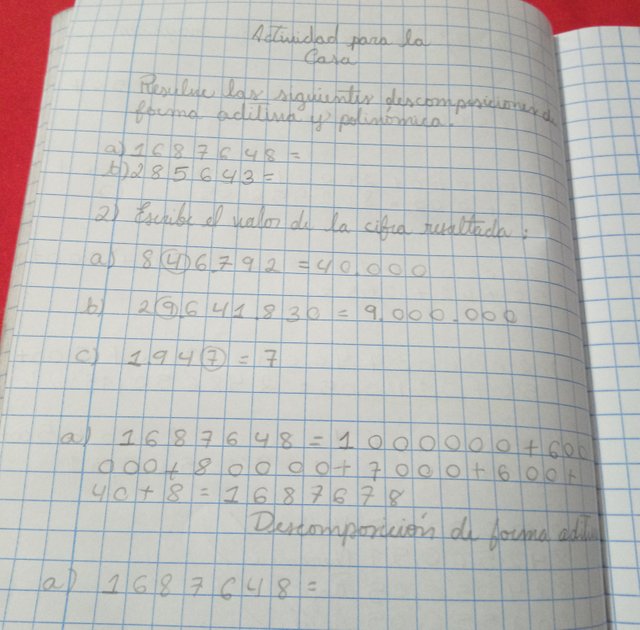 Actividad para la
Casa
Resuelve las siguientes descomposiciones de
forma aditiva y polinómica.
a) 1687648=
b) 285643=
2) Escribe el valor de la cifra resaltada:
a) 846.792=40.000
b) 29.641.830=9.000.000
c) 1947=7
a) 1687648=1000000+600
000+80000+7000+600+
40+8=1687678
Descomposición de forma aditi
a) 1687648=